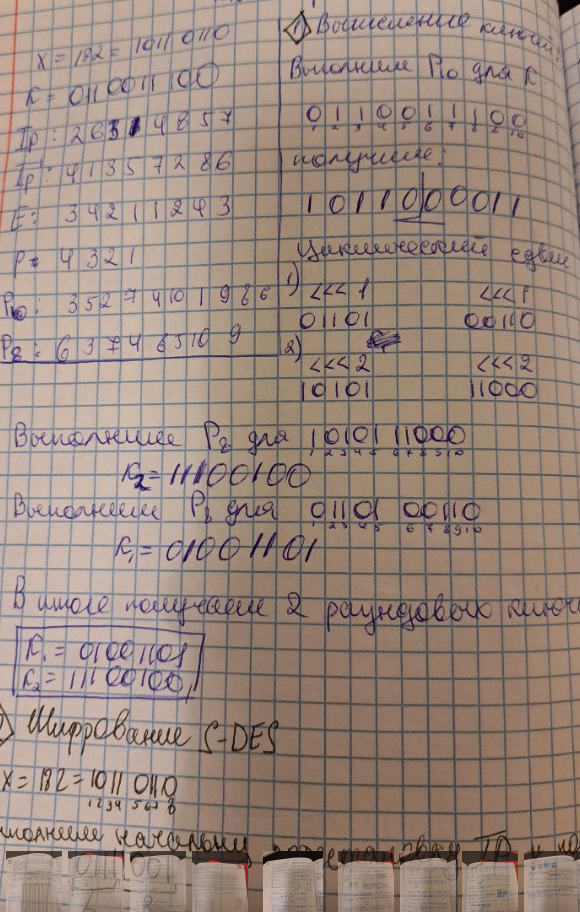 X = 182 = 1011 0110
K = 0110011100
IP: 2 6 3 1 4 8 5 7
IP: 4 1 3 5 7 2 8 6
E: 3 4 2 1 1 2 4 3
P = 4 3 2 1
P10: 3 5 2 7 4 10 1 9 8 6
P8: 6 3 7 4 8 5 10 9
1) Вычисление ключей:
Выполним P10 для K
0 1 1 0 0 1 1 1 0 0
1 2 3 4 5 6 7 8 9 10
получим:
1 0 1 1 0 0 0 0 1 1
Циклический сдвиг
1) <<< 1 <<< 1
01101 00110
2) <<< 2 <<< 2
10101 11000
Выполним P8 для 10101 11000
1 2 3 4 5 6 7 8 9 10
K2 = 11100100
Выполним P8 для 01101 00110
1 2 3 4 5 6 7 8 9 10
K1 = 01001101
В итоге получаем 2 раундовых ключа
K1 = 01001101
K2 = 11100100
) Шифрование S-DES
X = 182 = 1011 0110
1 2 3 4 5 6 7 8
начальную IP